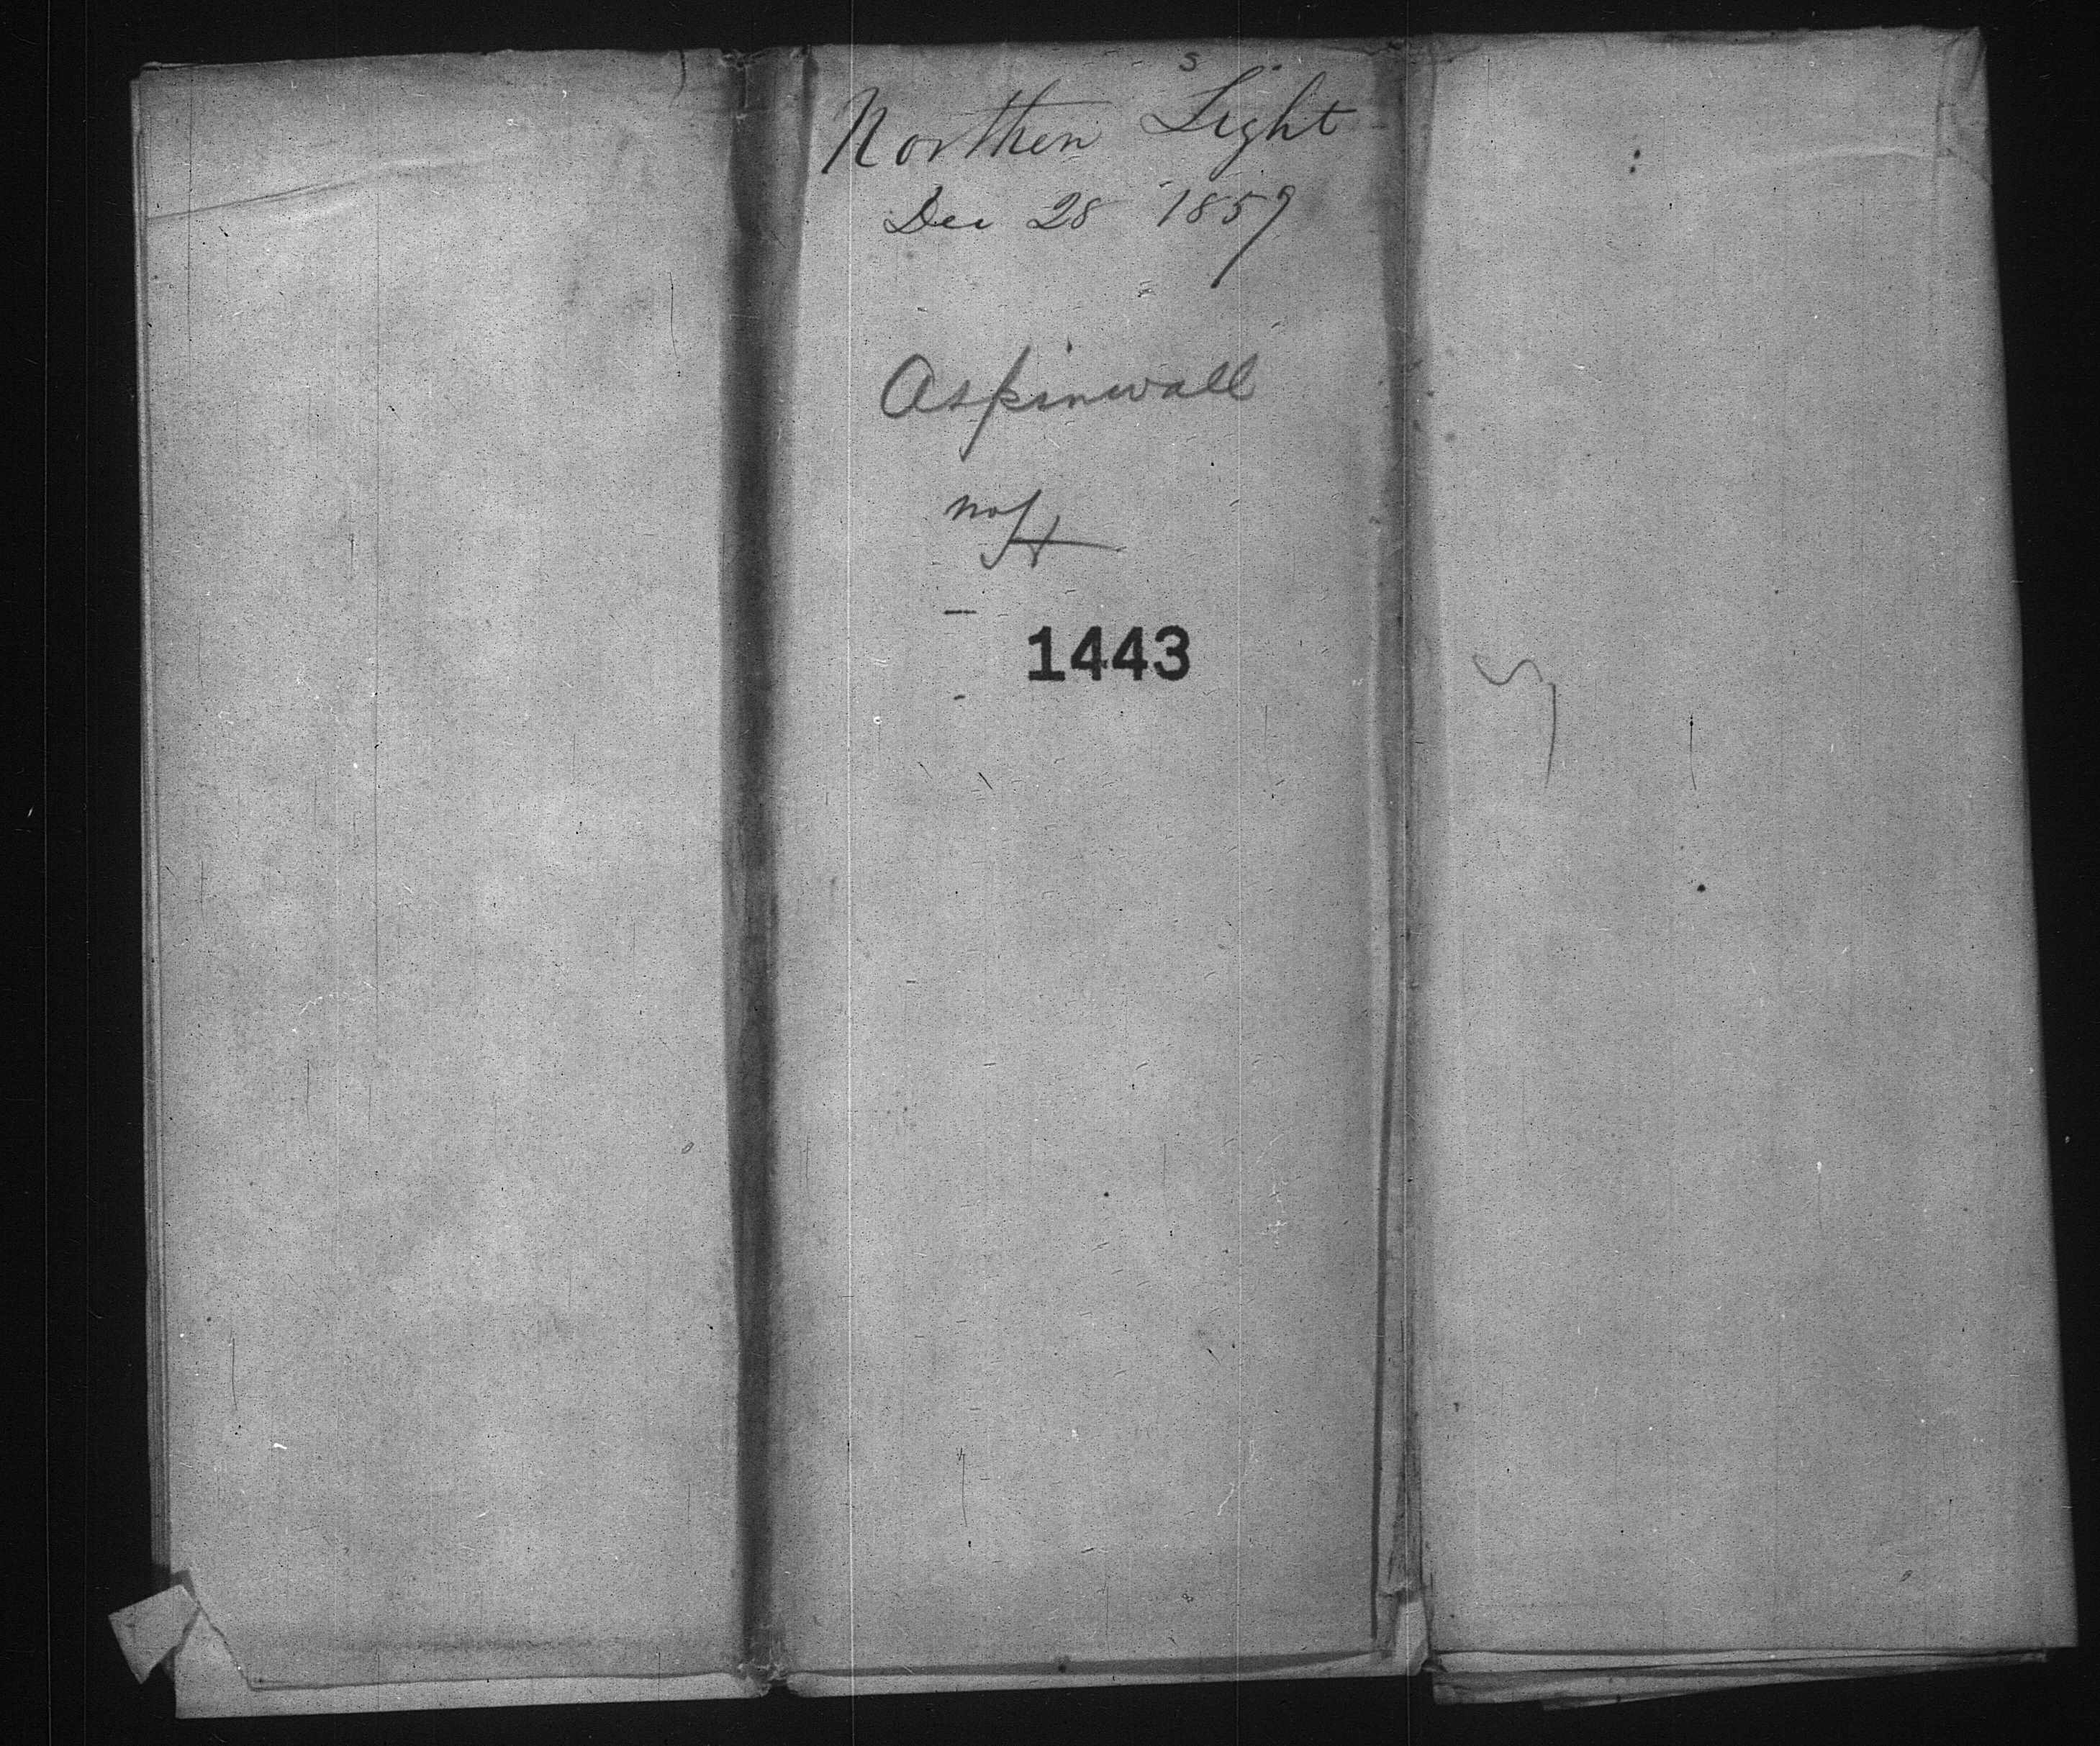 Northen Light
Dec 28 1859
Aspinwall
1443